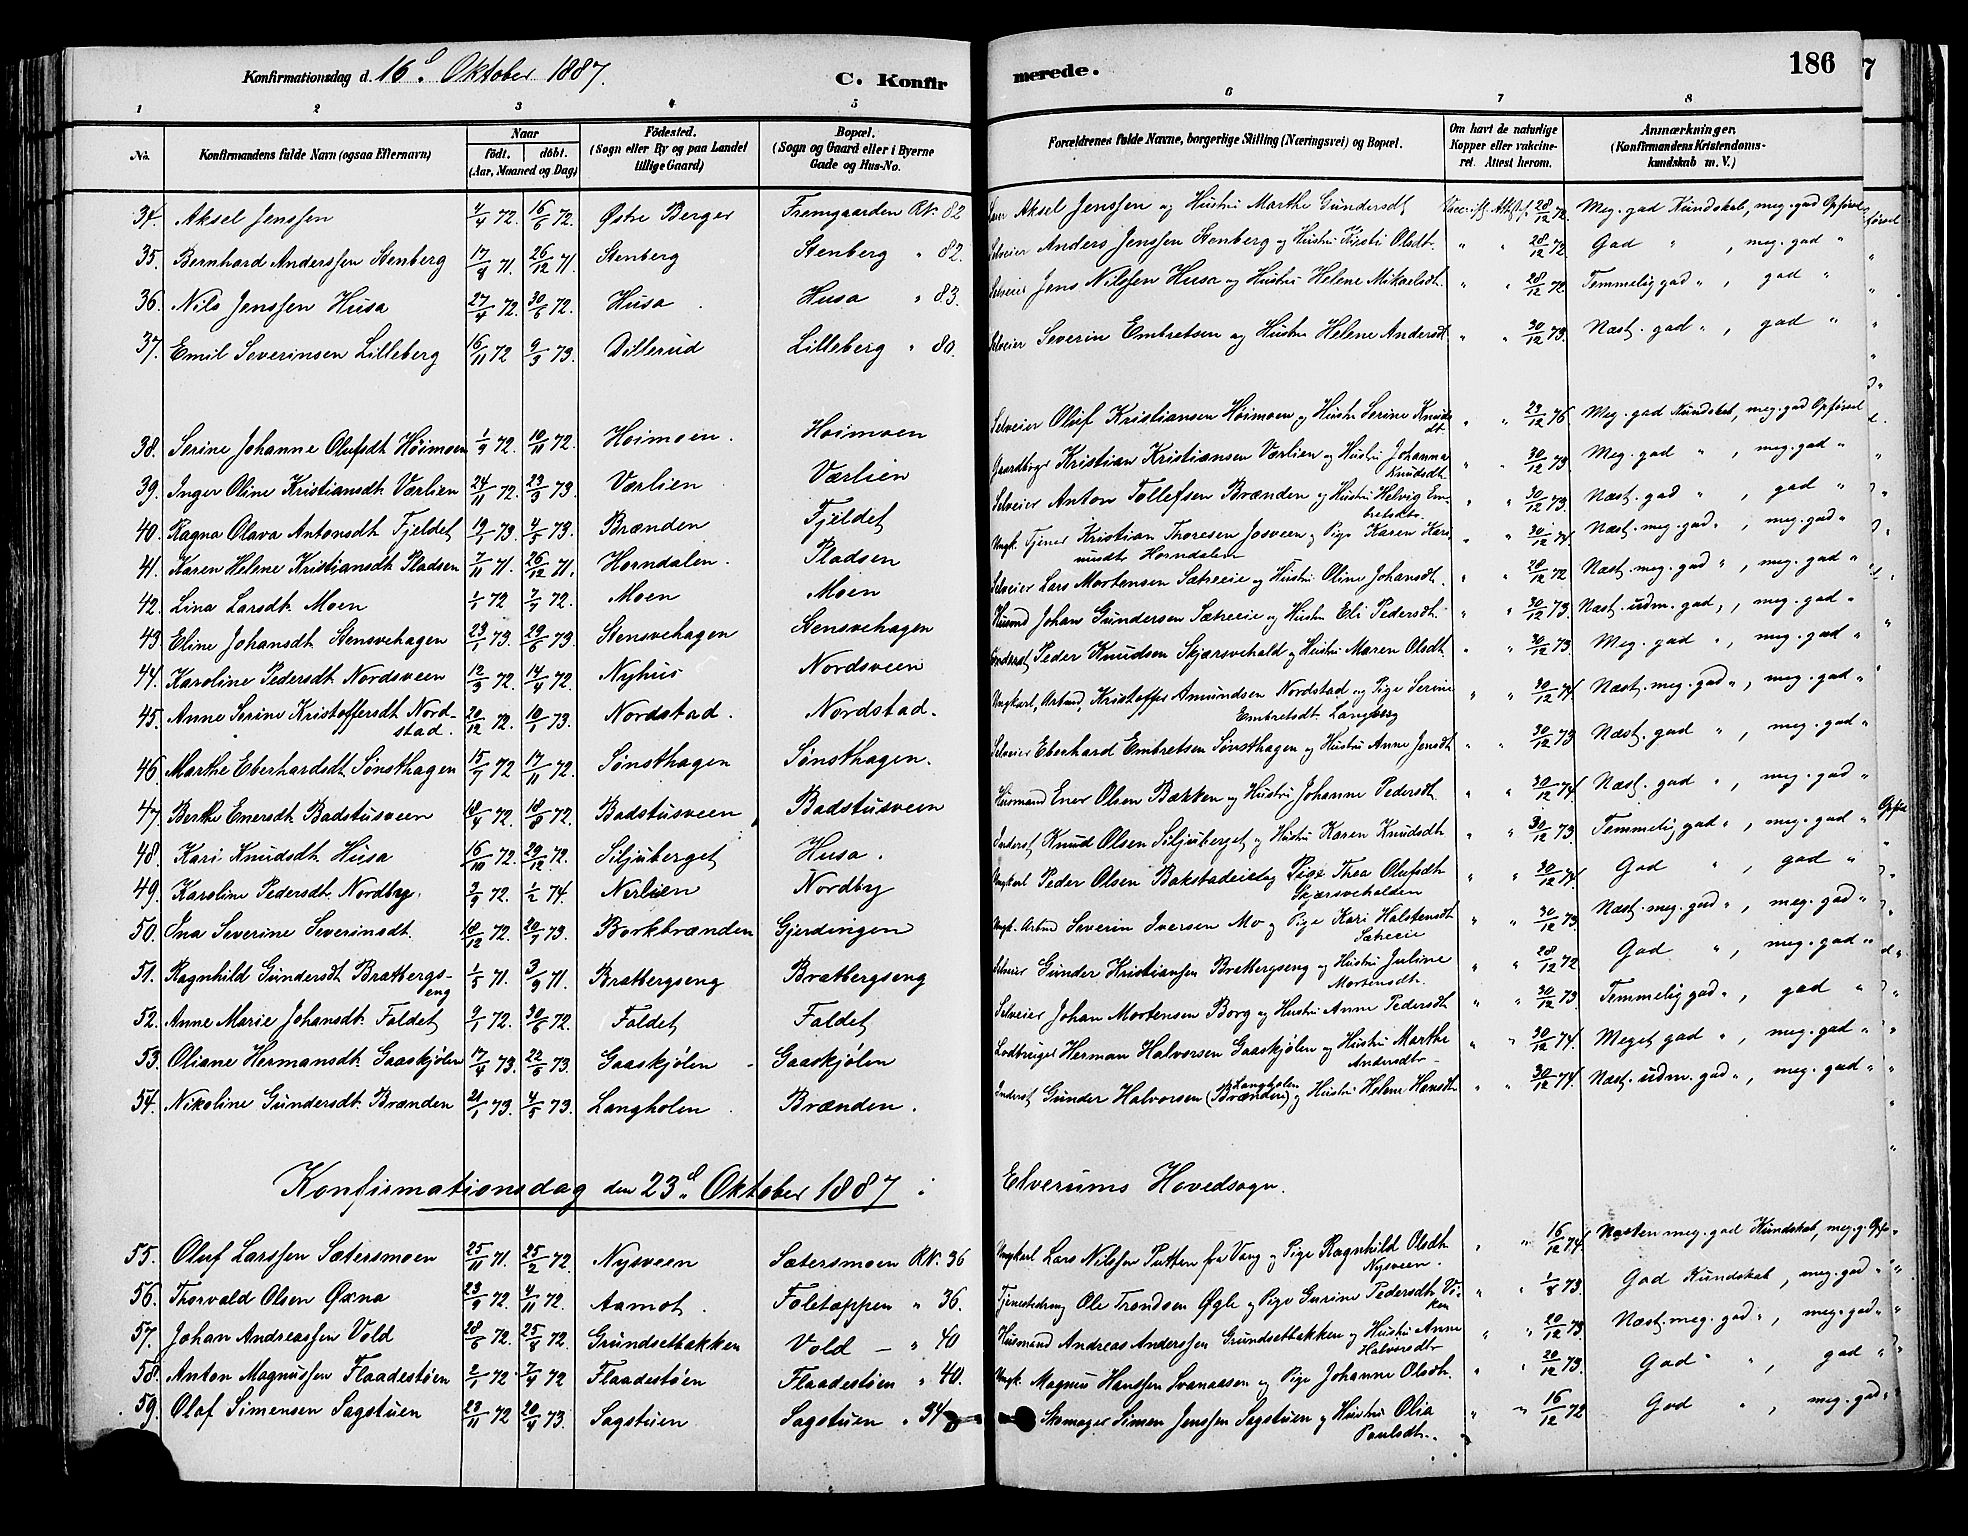 Konfirmationsdag d. 16d Oktober 1887. C. Konfir
merede. 186
1 2 3 4 5 6 7 8
No. Konfirmandens fulde Navn (ogsaa Efternavn) Naar født. døbt. (Aar, Maaned og Dag) Fødested. (Sogn eller By og paa Landet tillige Gaard) Bopæl. (Sogn og Gaard eller i Byerne Gade og Hus-No. Forældrenes fulde Navne, borgerlige Stilling (Næringsvei) og Bopæl. Om havt de naturlige Kopper eller vakcineret. Attest herom. Anmærkninger. (Konfirmandens Kristendomskundskab m. V.)
34. Aksel Jenssen 4/4 72. 16/6 72. Østre Berger Fremgaarden RN. 82 Aksel Jenssen og Hustru Marthe Gundersdt 28/12 72. Meg. god Kundskab, meg. god Opførsel
35. Bernhard Anderssen Stenberg 17/8 71. 26/12 71. Stenberg Stenberg " 82. Selveier Anders Jenssen Stenberg og Hustru Kirsti Olsdt. " " 28/12 72. God " , meg. god "
36. Nils Jenssen Husa 27/4 72. 30/6 72. Husa Husa " 83. Selveier Jens Nilssen Husa og Hustru Helene Mikaelsdt. " " 28/12 72 Temmelig god " , god "
37. Emil Severinsen Lilleberg 16/11 72 9/3 73. Dillerud Lilleberg " 80. Selveier Severin Embretsen og Hustru Helene Andersdt. " " 30/12 73. Næst. god " , god "
38. Serine Johanne Olufsdt Høimoen 1/9 72. 10/11 72. Høimoen. Høimoen Selveier Oluf Kristiansen Høimoen og Hustru Serine Knudsdt " " 23/12 76. Meg. god Kundskab, meg. god Opførsel
39. Inger Oline Kristiansdt. Værlien 24/11 72. 23/3 73. Værlien. Værlien Gaardbruger Kristian Kristiansen Værlien og Hustru Johanna Knudsdt. " " 30/12 73. Meg. god " , meg. god "
40. Ragna Olava Antonsdt. Fjeldet 19/1 73. 4/5 73. Brænden Fjeldet Selveier Anton Tollefsen Brænden og Hustru Helvig Embretsdtr. " " 30/12 73. Næst. god " , god "
41. Karen Helene Kristiansdt. Pladsen 7/11 71. 26/12 71. Horndalen. Pladsen Ungk. Tjener Kristian Thoresen Josveen og Pige Karen Karinusdt Horndalen " " 30/12 74. Næst. meg. god " , meg. god "
42. Lina Larsdt. Moen 1/1 72 7/4 72. Moen Moen Selveier Lars Mortensen Sætreeie og Hustru Oline Johansdt. " " 28/12 72 Næst. meg. god " , meg. god "
43. Eline Johansdt. Stensvehagen 23/1 73. 29/6 73. Stensvehagen Stensvehagen Husmd Johan Gundersen Sætreeie og Hustru Eli Pedersdt. " " 30/12 73. Næst. udm. god " , meg. god "
44. Karoline Pedersdt. Nordsveen 12/3 72. 14/4 72. Nyhus Nordsveen Inderst Peder Knudsen Skjærsvehald og Hustru Maren Olsdt. " " 30/12 73 Meg. god " , meg. god "
45. Anne Serine Kristoffersdt. Nordstad. 20/12 72. 10/1 73. Nordstad. Nordstad. Ungkarl, Arbmd, Kristoffer Amundsen Nordstad og Pige Serine Embretsdt. Langberg " " 30/12 74. Næst. meg. god " , meg. god "
46. Marthe Eberhardsdt. Sønsthagen 15/7 72 17/11 72. Sønsthagen Sønsthagen. Selveier Eberhard Embretsen Sønsthagen og Hustru Anne Jensdt. " " 30/12 73 Næst. god " , meg. god "
47. Berthe Enersdt. Badstusveen 18/4 72. 18/8 72. Badstusveen Badstusveen Husmand Ener Olsen Bakken og Hustru Johanne Pedersdt. " " 30/12 74. Næst. god " , meg. god "
48. Kari Knudsdt. Husa 16/10 72. 29/12 72. Siljuberget Husa. Inderst Knud Olsen Siljuberget og Hustru Karen Knudsdt. " " 30/12 73. Temmelig god " , meg. god "
49. Karoline Pedersdt. Nordby. 3/9 72. 1/2 74. Nerlien Nordby Ungkarl Peder Olsen Bakstadeie og Pige Thea Olufsdt. Skjærsvehalden " " 30/12 74. God " , god "
50. Ina Severine Severinsdt. 18/12 72. 20/7 73. Borkbrænden Gjerdingen Ungk. Arbmd Severin Iversen Mo og Pige Kari Halstensdt Sætreeie " " 30/12 73. Næst. meg. god " , meg. god "
51. Ragnhild Gundersdt Bratbergseng 1/5 71. 3/9 71. Bratbergseng Bratbergseng Selveier Gunder Kristianssen Bratbergseng og Hustru Juline Mortensdt. " " 28/12 72 God " , meg. god "
52. Anne Marie Johansdt. Faldet 9/1 72. 30/6 72. Faldet Faldet Selveier Johan Mortensen Borg og Hustru Anne Pedersdt " " 30/12 73. Temmelig god " , god "
53. Oliane Hermansdt. Gaaskjølen 17/4 73. 22/6 73. Gaaskjølen Gaaskjølen Lodbruger Herman Halvorsen Gaaskjølen og Hustru Marthe Andersdtr. " " 30/12 74. Meget god " , meg. god "
54. Nikoline Gundersdt. Brænden 21/1 73. 4/5 73. Langholen. Brænden. Inderst Gunder Halvorsen (Brænden) Langholen og Hustru Helene Hansdt. " " 30/12 74. Næst. udm. god " , meg. god "
Konfirmationsdag den 23d Oktober 1887 i Elverums Hovedsogn.
55. Oluf Larssen Sætersmoen 25/11 71. 25/2 72. Nysveen Sætersmoen RN. 36 Ungkarl Lars Nilssen Putten fra Vang og Pige Ragnhild Olsdt. Nysveen. " " 16/12 74 Næsten meg. god Kundskab, meg. g. Opfør
56. Thorvald Olsen Øxna 23/9 72. 4/11 72. Aamot. Foletappen " 36. Tjenestedreng Ole Trondsen Øgle og Pige Gurine Pedersdt. Viken " " 1/8 73. God Kundskab, meg. god "
57. Johan Andreassen Vold 28/6 72. 25/8 72. Grundsetbakken Vold " 40 Husmand Andreas Anderssen Grundsetbakken og Hustru Anne Halvorsdtr " " 20/12 73. Næst. meg. god " , meg. god "
58. Anton Magnussen Flaadestøen 2/1 72. 7/4 72 Flaadestøen Flaadestøen " 40. Ungk. Magnus Hanssen Svanaasen og Pige Johanne Olsdt. " " 20/12 73. God " , god "
59. Olaf Simensen Sagstuen 23/11 72 20/4 73. Sagstuen Sagstuen " 34 Skomager Simen Jenssen Sagstuen og Hustru Olia Paulsdt. " " 16/12 72 God " , meg. god "